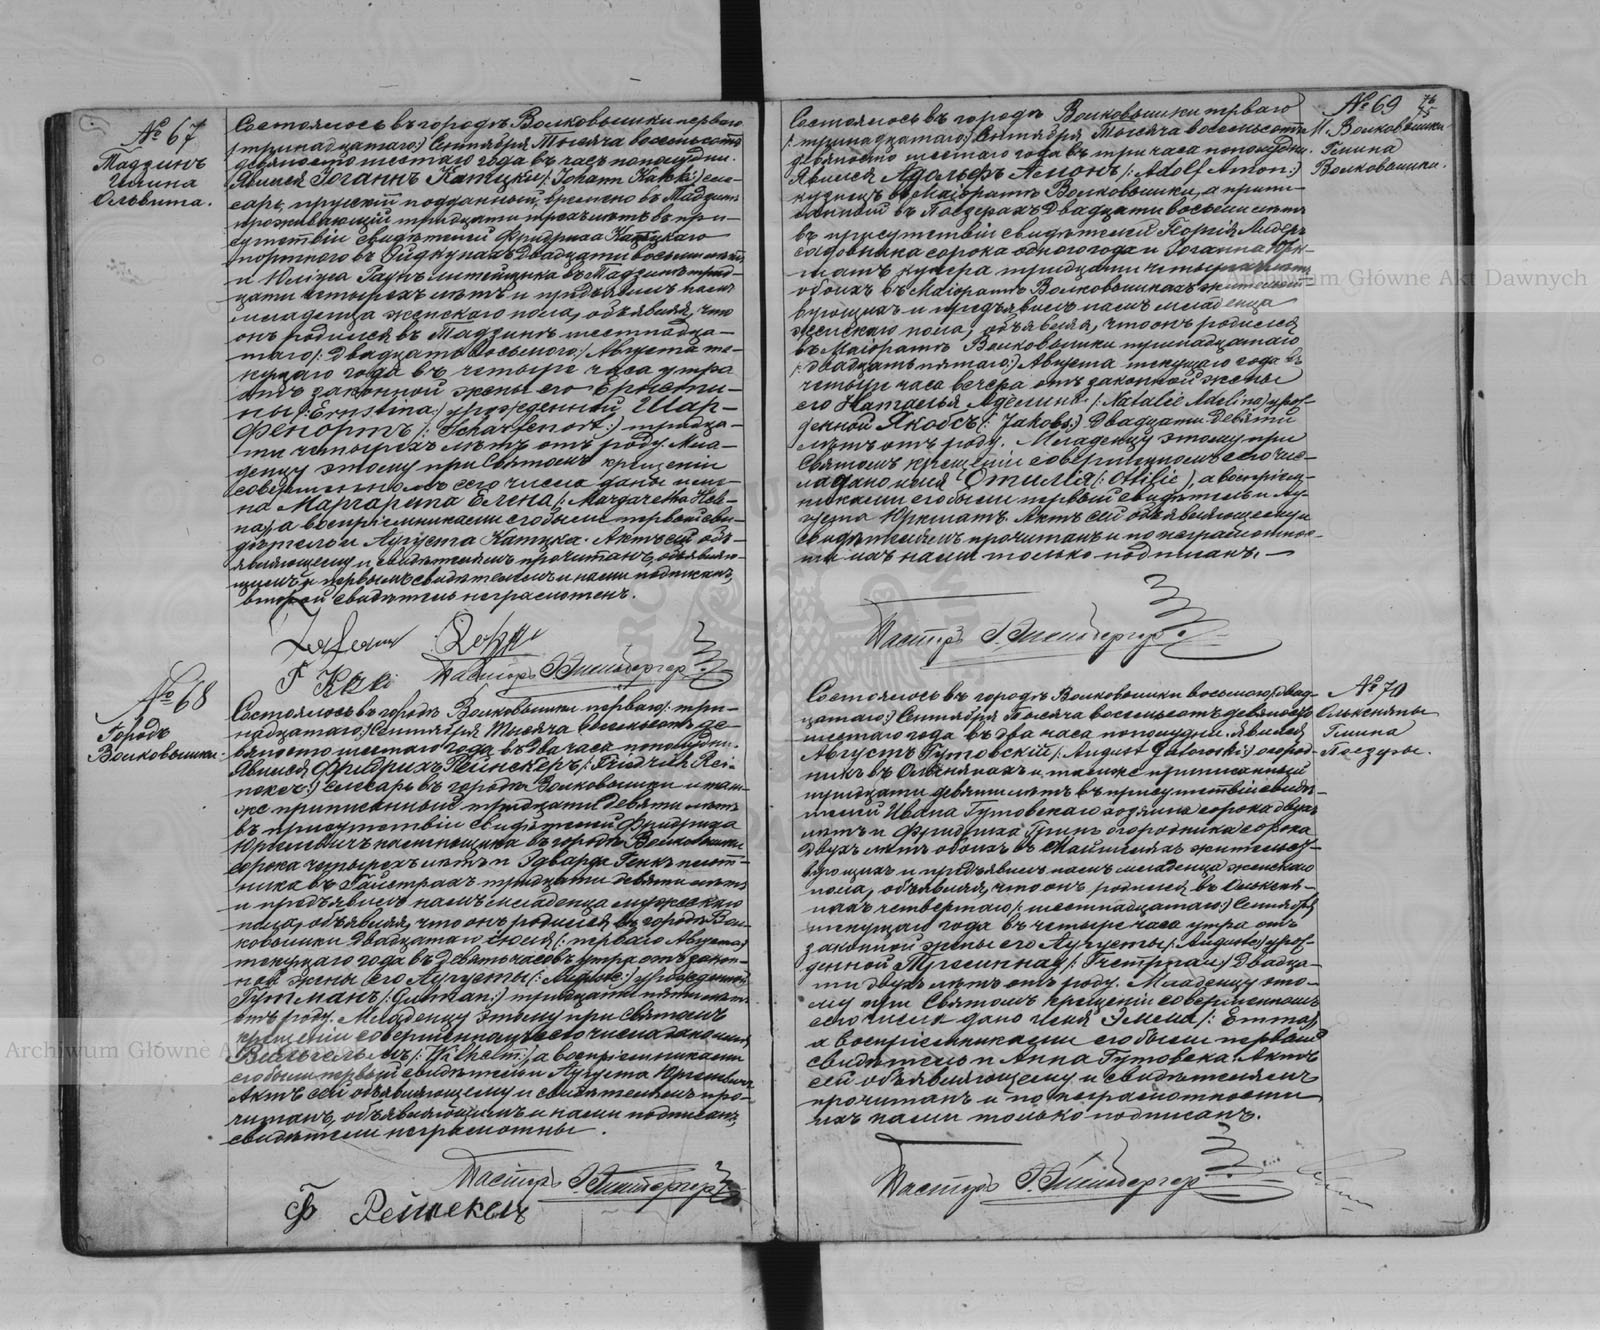 № 67
Тадзинъ
Гмина
Ольвита.
Состоялось въ городѣ Волковышки перваго
(тринадцатаго) Сентября Тысяча восемьсотъ
девяносто шестаго года въ часъ пополудни.
Явился Іоганнъ Катцки /: Johann Katzki :/ сле-
сарь, прускій подданный, временно въ Тадзинѣ
проживающій тридцати трехъ лѣтъ въ при-
сутствіи свидѣтелей Фридриха Катцкаго
портнаго въ двадцати восьми лѣтъ
и Юліуса въ Тадзинѣ трид-
цати четырехъ лѣтъ и предъявилъ намъ
младенца женскаго пола, объявляя, что
онъ родился въ Тадзинѣ шестнадца-
таго /: двадцать восьмаго :/ Августа те-
кущаго года въ четыре часа утра
отъ законной жены его Эрнести-
ны /: Ernstina :/ урожденной Шар-
фенортъ /: Scharfenort :/ тридца-
ти четырехъ лѣтъ отъ роду. Мла-
денцу этому при Святомъ крещеніи
совершенномъ сего числа даны име-
на Маргарета Елена /: Margaretha Hele-
na :/ а воспріемниками его были первый сви-
дѣтель и Августа Катцка. Актъ сей объ-
являющему и свидѣтелямъ прочитанъ, объявляю-
щимъ и первымъ свидѣтелемъ и нами подписанъ,
второй свидѣтель неграмотенъ.
Пасторъ
№ 68
Городъ
Волковышки.
Состоялось въ городѣ Волковышки перваго /: три-
надцатаго :/ Сентября Тысяча восемьсотъ де-
вяносто шестаго года въ два часа пополудни.
Явился Фридрихъ Рейнекеръ /: Friedrich Rei-
неker :/ слесарь въ городѣ Волковышки и там-
же приписанный тридцати девяти лѣтъ
въ присутствіи свидѣтелей Фридриха
въ городѣ Волковышки
сорока четырехъ лѣтъ и Эдварда Генкъ плот-
ника въ тридцати девяти лѣтъ
и предъявилъ намъ младенца мужескаго
пола, объявляя, что онъ родился въ городѣ Вол-
ковышки двадцатаго Іюля /: перваго Августа :/
текущаго года въ девять часовъ утра отъ закон-
ной жены его Августы /: Auguste :/ урожденной
Гутманъ /: Gutman :/ тридцати пяти лѣтъ
отъ роду. Младенцу этому при Святомъ
крещеніи совершенномъ сего числа дано имя
Вильгельмъ /: Wilhelm :/, а воспріемниками
его были первый свидѣтель и Августа
Актъ сей объявляющему и свидѣтелямъ про-
читанъ, объявляющимъ и нами подписанъ,
свидѣтели неграмотны.
Пасторъ
Ф Рейнекеръ
№ 69
М. Волковышки
Гмина
Волковышки.
Состоялось въ городѣ Волковышки перваго
/: тринадцатаго :/ Сентября Тысяча восемьсотъ
девяносто шестаго года въ три часа пополудни.
Явился Адольфъ Амонъ /: Adolf Amon :/
кузнецъ въ Маіоратѣ Волковышки, а припи-
санный въ двадцати восьми лѣтъ
въ присутствіи свидѣтелей Георга
садовника сорока одного года и Іоганна Юрк-
шатъ кучера тридцати четырехъ лѣтъ
обоихъ въ Маіоратѣ Волковышкахъ жительст-
вующихъ и предъявилъ намъ младенца
женскаго пола, объявляя, что онъ родился
въ Маіоратѣ Волковышки тринадцатаго
/: двадцать пятаго :/ Августа текущаго года въ
четыре часа вечера отъ законной жены
его Натальи Аделины /: Natalie Adelina :/ урож-
денной Якобсъ /: Jakobs :/ двадцати девяти
лѣтъ отъ роду. Младенцу этому при
Святомъ крещеніи совершенномъ сего чис-
ла дано имя Отилія /: Ottilie :/, а воспріем-
никами его были первый свидѣтель и Ав-
густа Юркшатъ. Актъ сей объявляющему и
свидѣтелямъ прочитанъ и по неграмотнос-
ти ихъ нами только подписанъ. —
Пасторъ
№ 70
Ольксняны
Гмина
Состоялось въ городѣ Волковышки восьмаго /: двад-
цатаго :/ Сентября Тысяча восемьсотъ девяносто
шестаго года въ два часа пополудни. Явился
Августъ Гутовскій /: August Gutowski :/ огород-
никъ въ и также приписанный
тридцати девяти лѣтъ въ присутствіи свидѣ-
телей Ивана Гутовскаго хозяина сорока двухъ
лѣтъ и Фридриха огородника сорока
двухъ лѣтъ обоихъ въ жительст-
вующихъ и предъявилъ намъ младенца женскаго
пола, объявляя, что онъ родился въ Олькснян-
нахъ четвертаго /: шестнадцатаго :/ Сентября
текущаго года въ четыре часа утра отъ
законной жены его Августы /: Auguste :/ урож-
денной двадца-
ти двухъ лѣтъ отъ роду. Младенцу это-
му при Святомъ крещеніи совершенномъ
сего числа дано имя Эмма /: Emma :/
а воспріемниками его были первый
свидѣтель и Анна Гутовска. Актъ
сей объявляющему и свидѣтелямъ
прочитанъ и по неграмотности
ихъ нами только подписанъ.
Пасторъ
Archiwum Główne Akt Dawnych
Archiwum Główne A